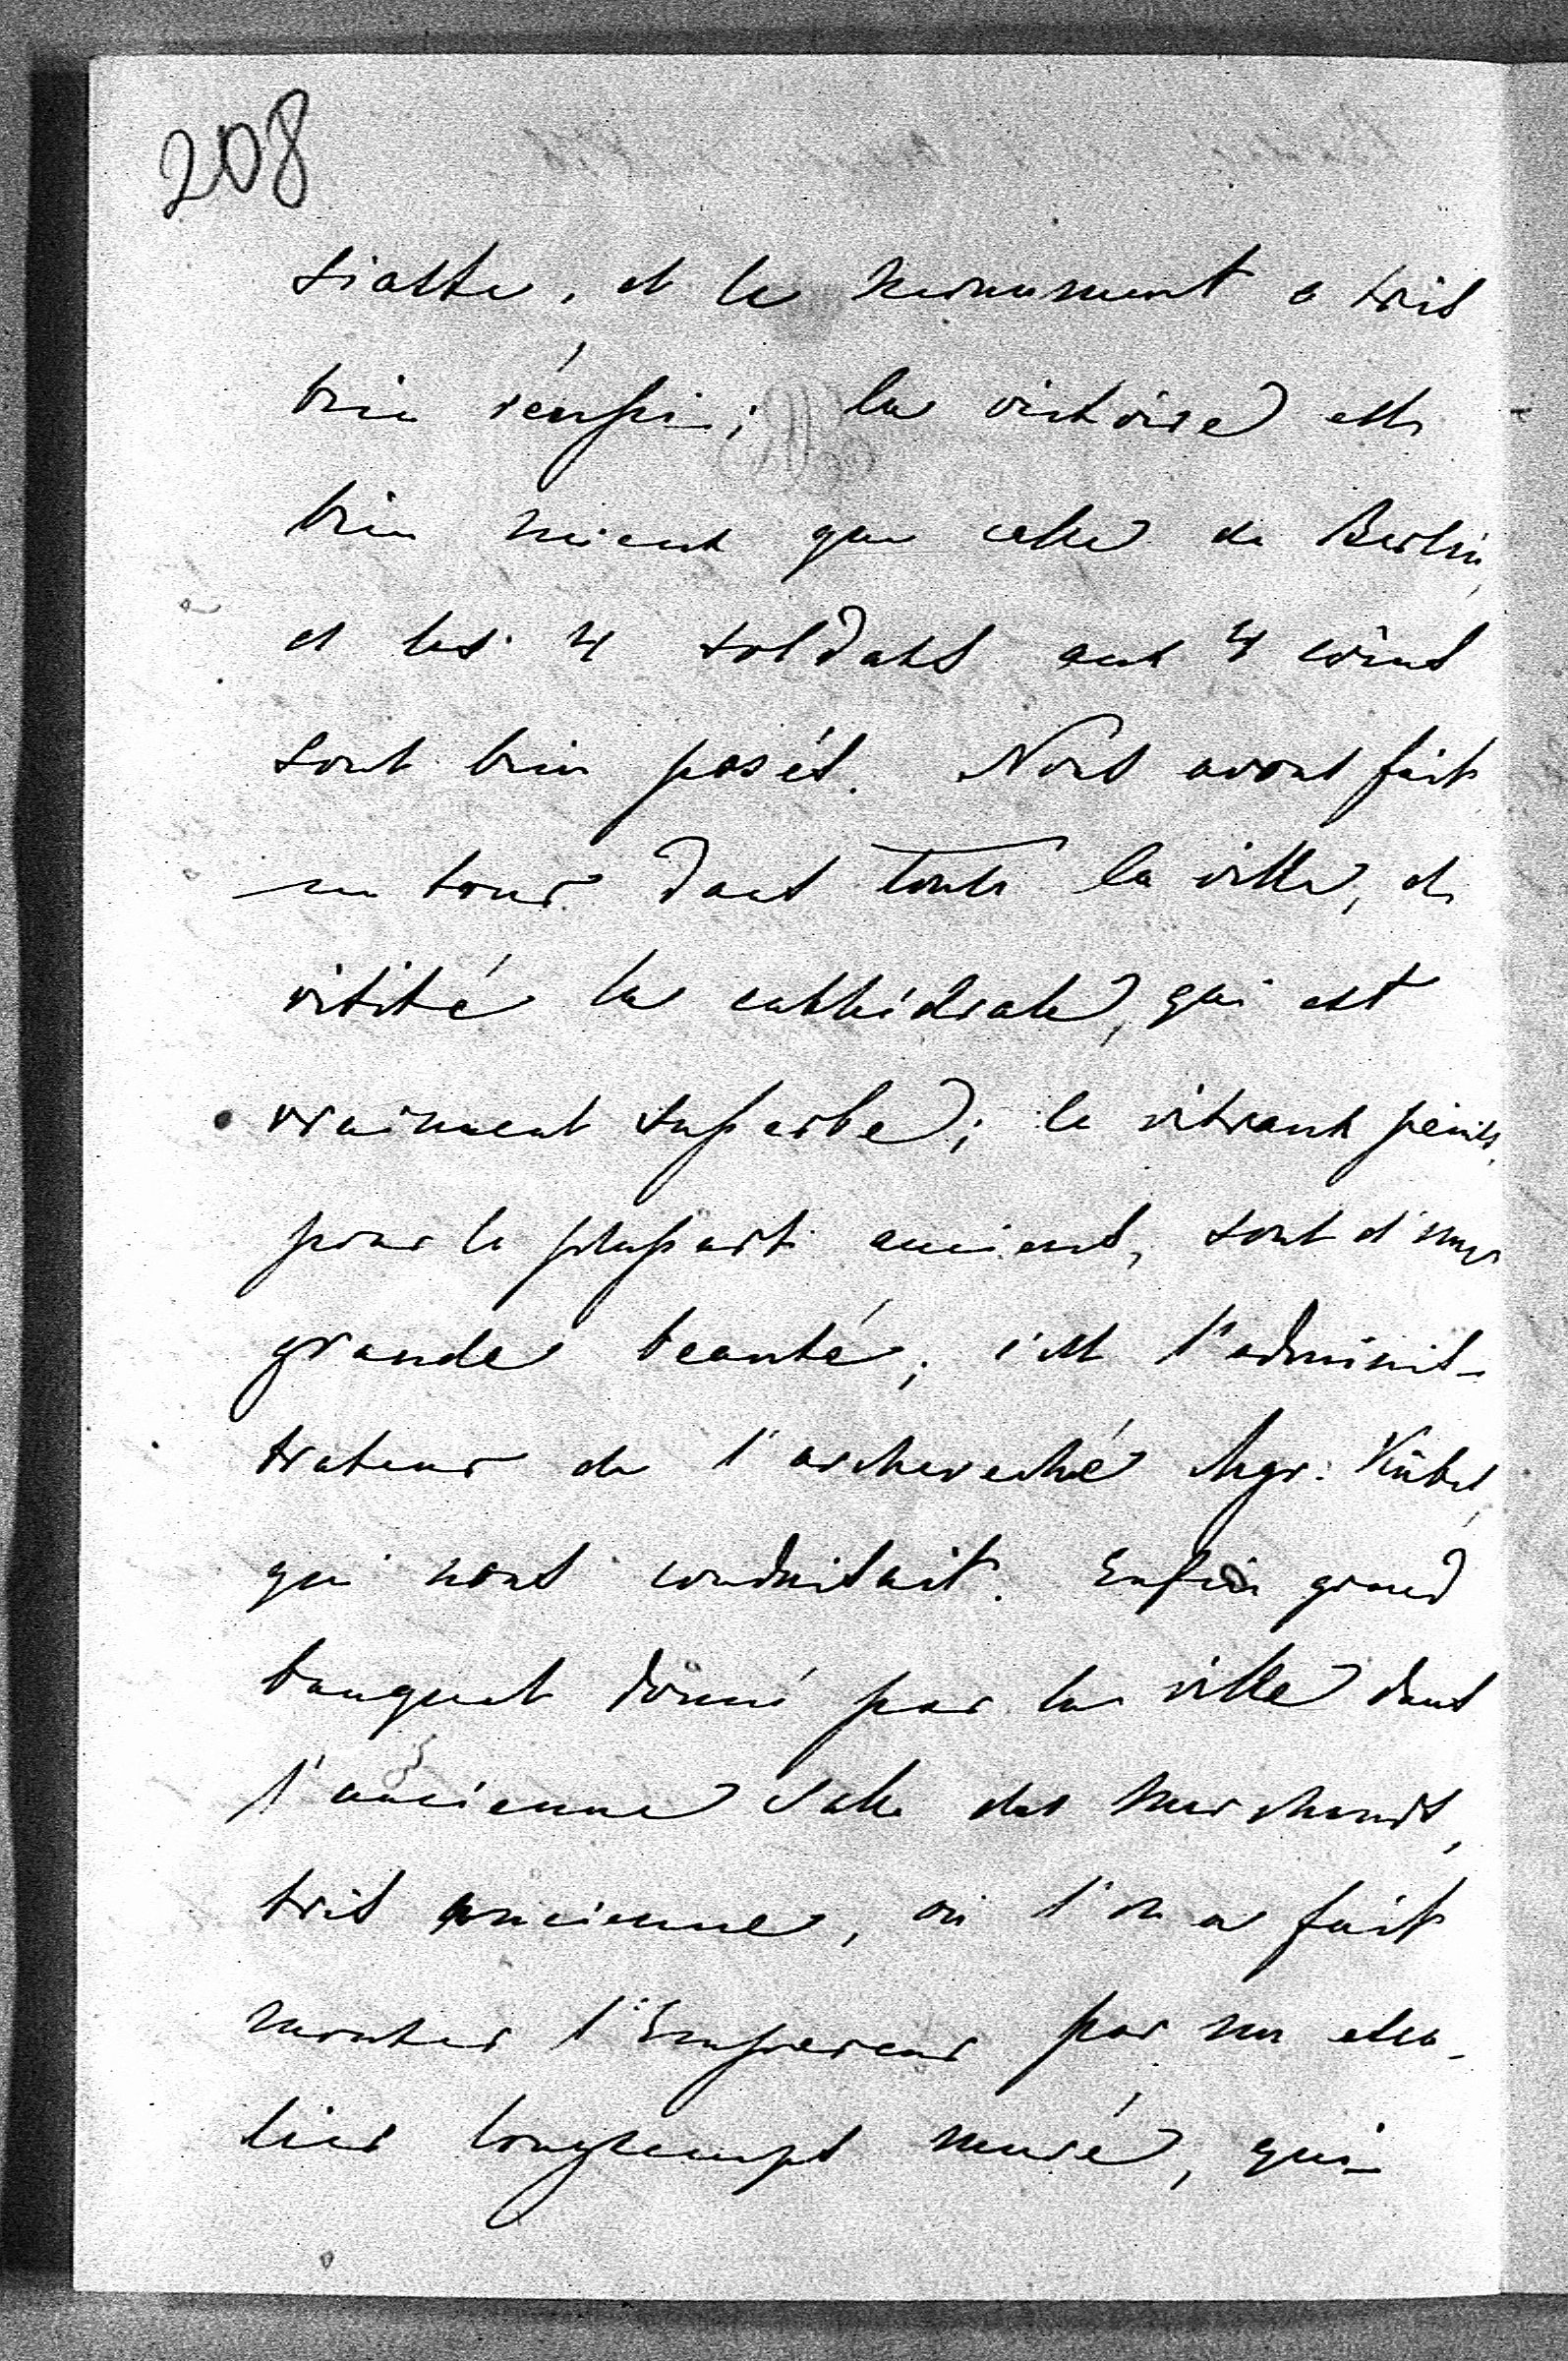 208
siaste, et le monument a très
bien réussi; la victoire est
bien mieux que celle de Berlin,
et les 4 soldats aux 4 coins
sont bien posés. Nous avons fait
un tour dans toute la ville, et
visité la cathédrale, qui est
vraiment superbe; le vitraux peints,
pour la plupart anciens, sont d'une
grande beauté; c'est l'adminis-
trateur de l'archevêché Mgr. Kübel,
qui nous conduisait. Enfin grand
banquet donné par la ville dans
l'ancienne salle des marchands,
très ancienne, où l'on a fait
monter l'Empereur par un esca-
lier longtemps muré, qui